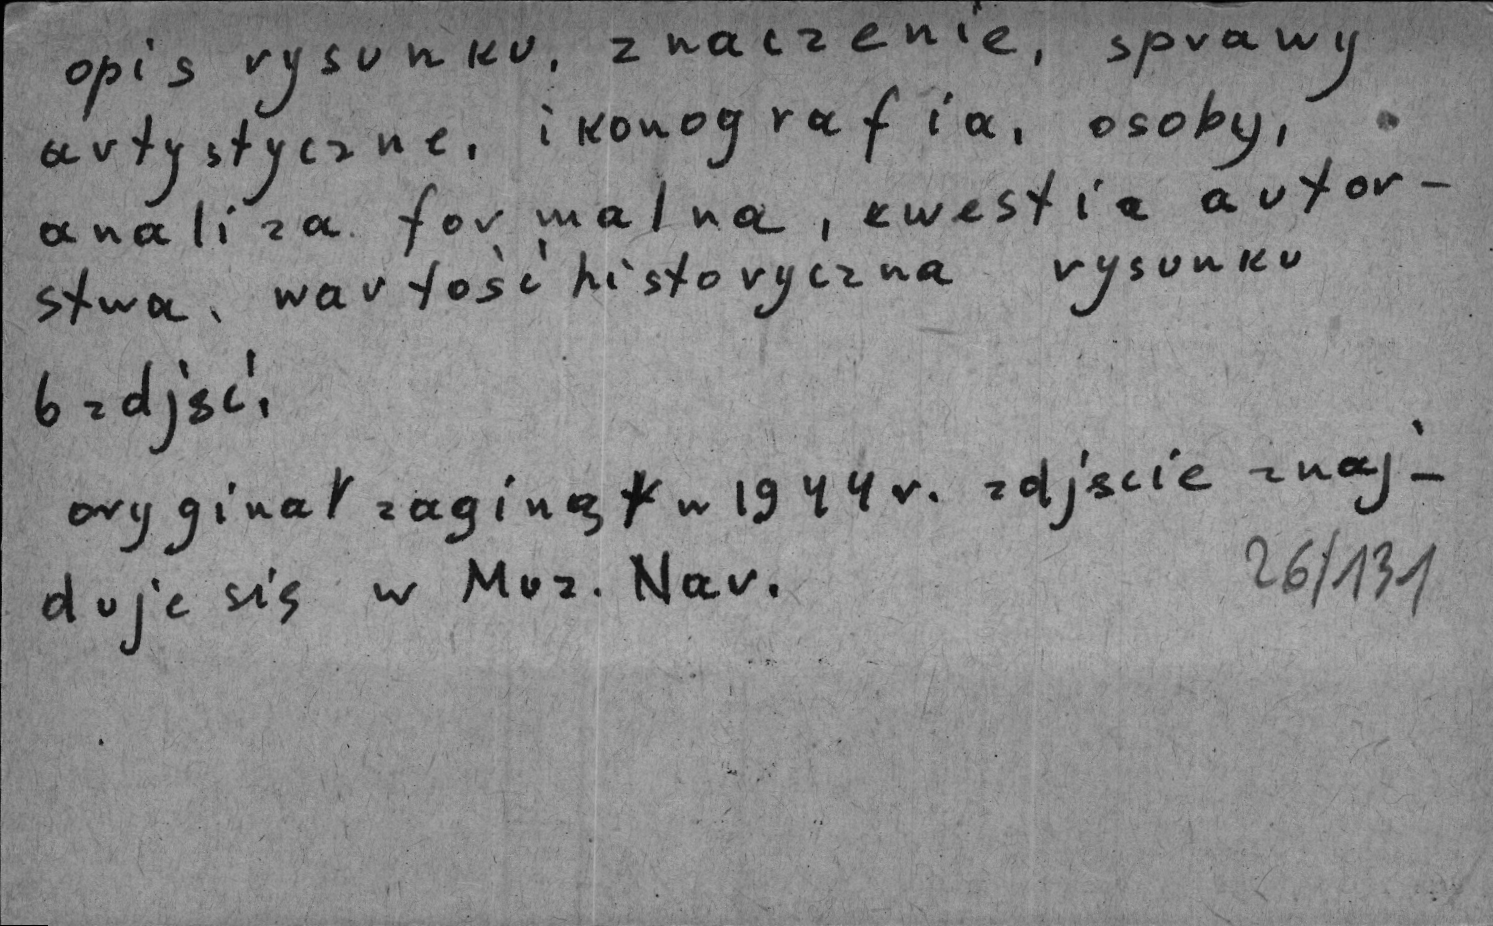 opis rysunku, znaczenie, sprawy
artystyczne, ikonografia, osoby,
analiza formalna, kwestia autor-
stwa, wartość historyczna rysunku
6 zdjęć,
oryginał zaginął w 1944 r. zdjęcie znaj-
duje się w Muz. Nar.
26/131